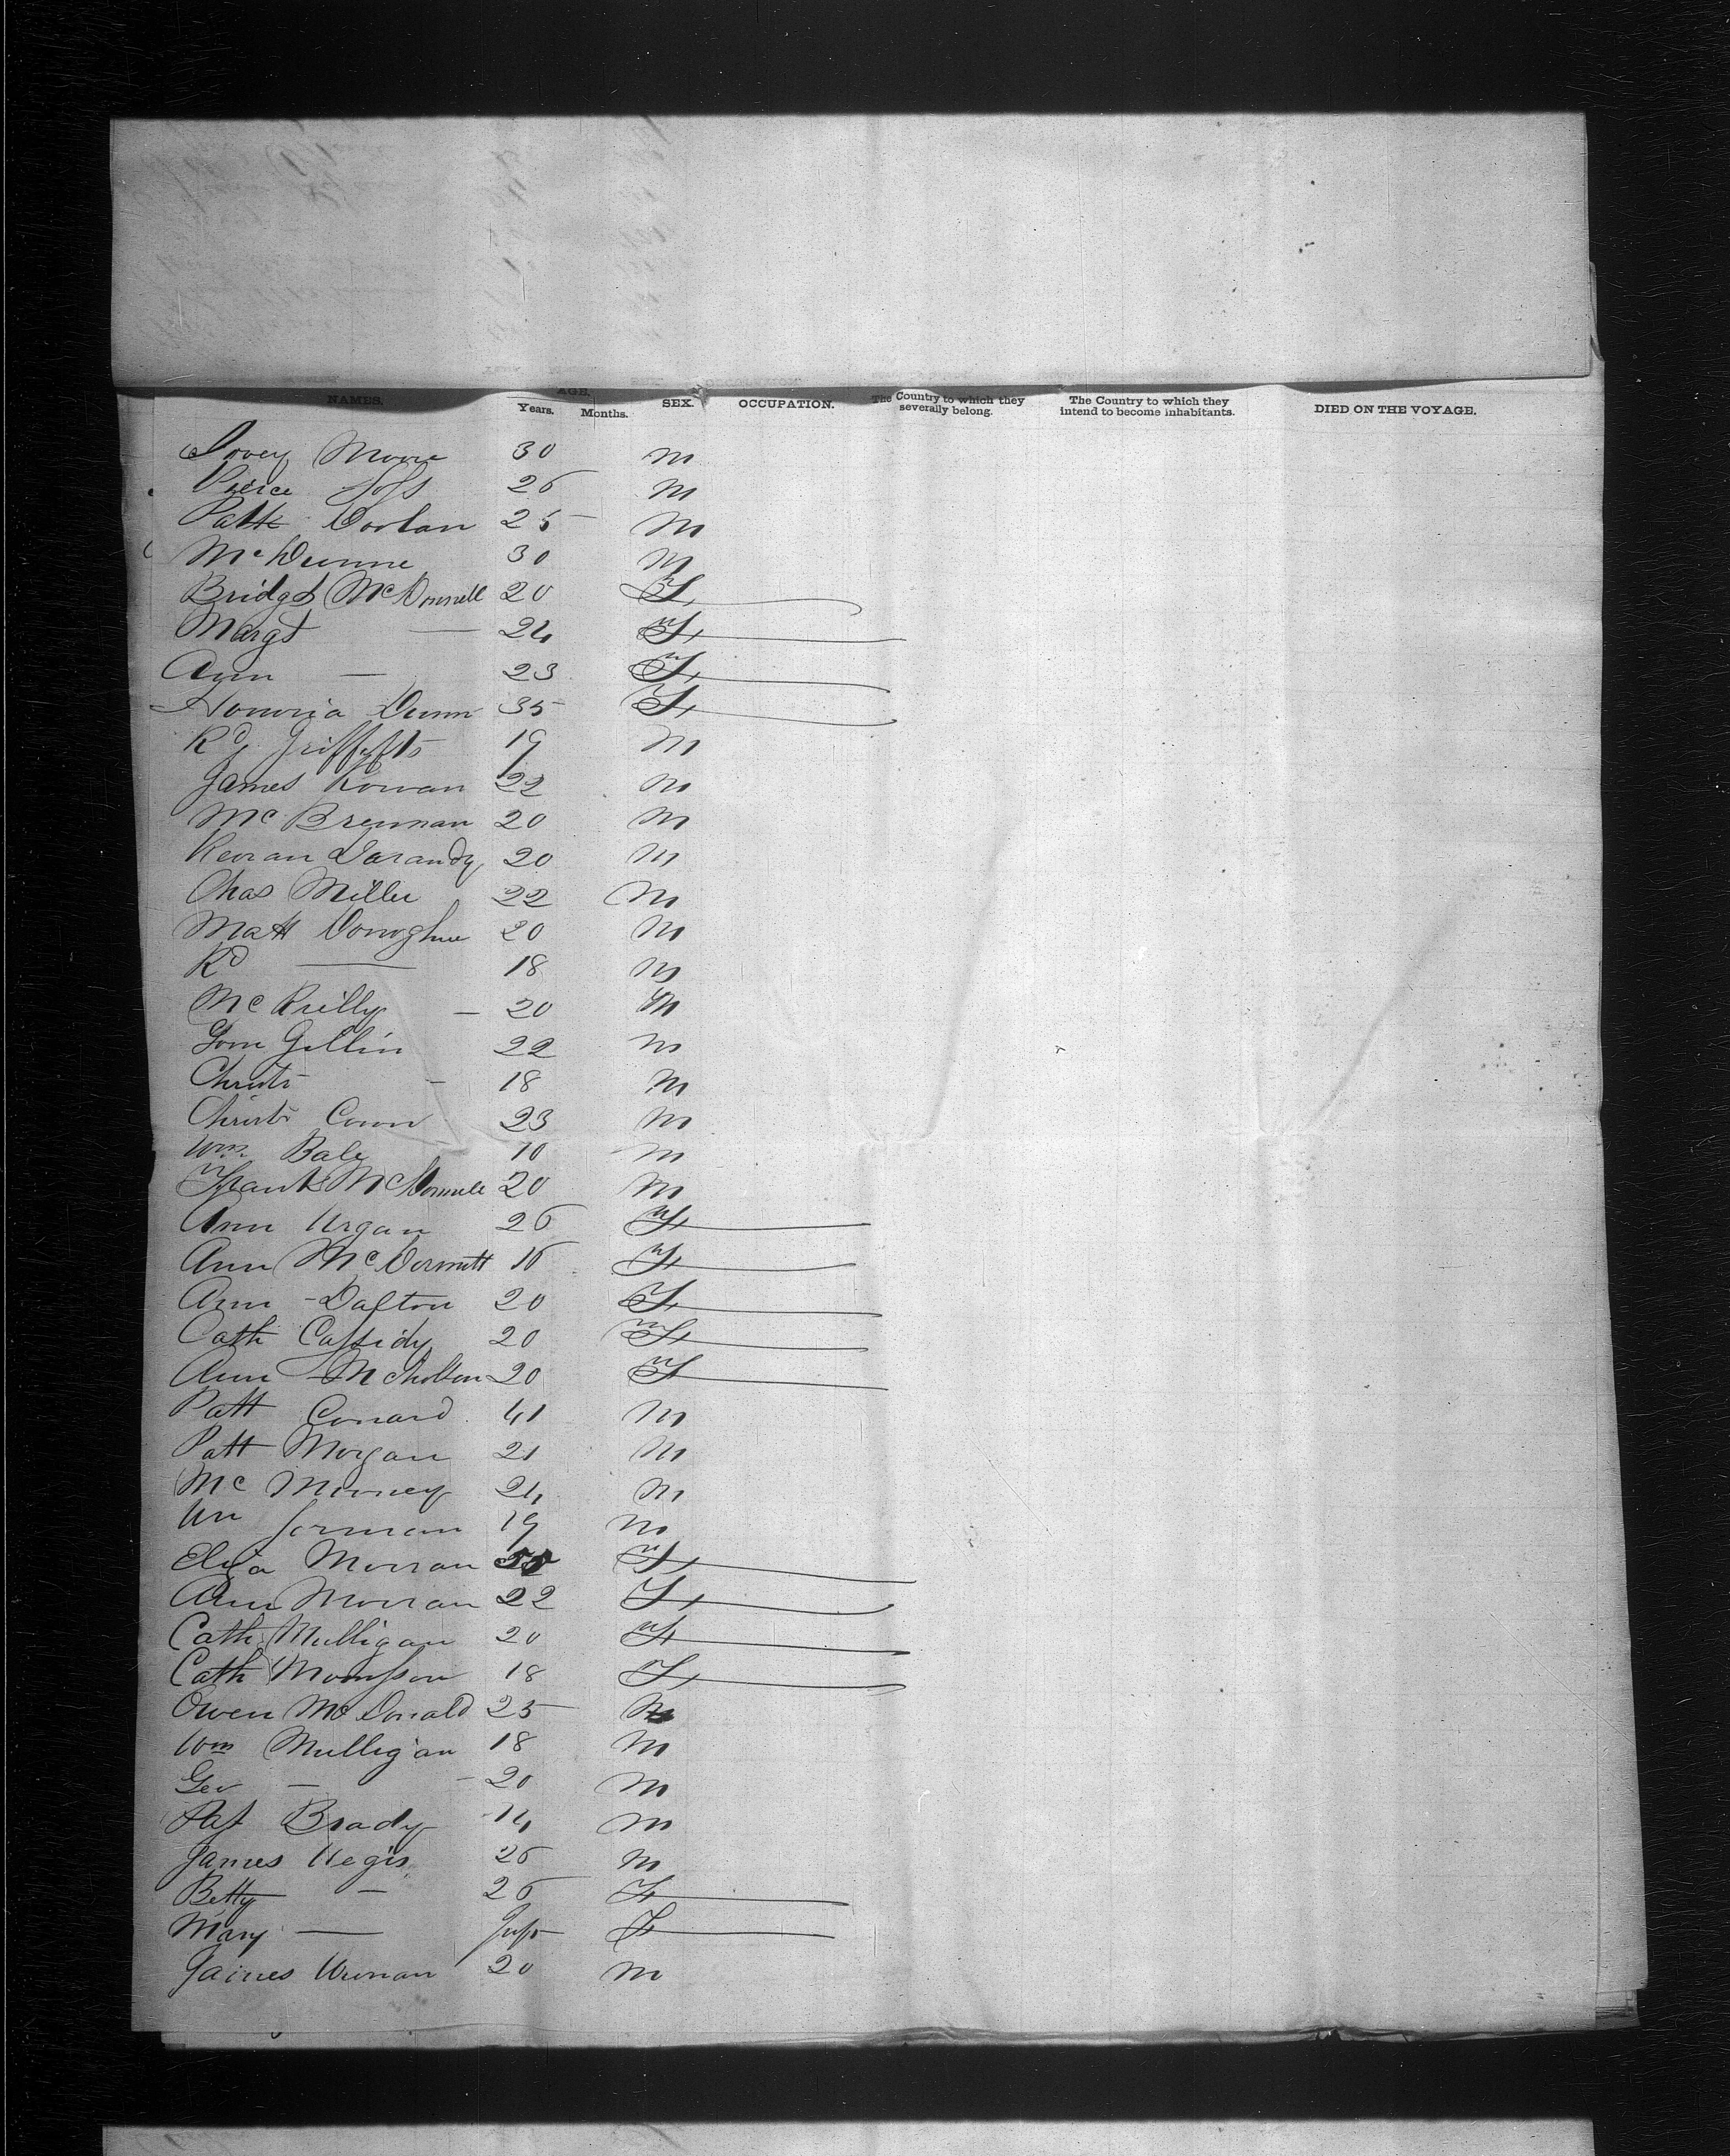 NAMES. AGE. Years. Months. SEX. OCCUPATION. The Country to which they severally belong. The Country to which they intend to become inhabitants. DIED ON THE VOYAGE.
Moore 30 m
Pierce 26 m
Patk Doolan 25 m
Mc Dunne 30 m
Bridgt McDonnell 20 F
Margt — 24 F
Ann — 23 F
Honoria Dunn 35 F
Rd Griffiths 19 m
James Rowan 22 m
Mc Brennan 20 m
20 m
Chas Miller 22 m
Matt Donoghue 20 m
Rd — 18 m
Mc Reilly — 20 m
Tom Gillin 22 m
Christr — 18 m
Christr Conn 23 m
Wm Bale 10 m
Frank McDonnell 20 m
Ann 26 F
Ann McDermott 16 F
Ann Dalton 20 F
Cath Cassidy 20 F
Ann 20 F
Patt Conard 41 m
Patt Morgan 21 m
Mc Mooney 24 m
Wm Jorman 19 m
Eliza Morran F
Ann Morran 22 F
Cath Mulligan 20 F
Cath 18 F
Owen McDonald 25 m
Wm Mulligan 18 m
Geo — 20 m
Pat Brady 14 m
James 26 m
Betty — 26 F
Mary — Inft F
James 20 m